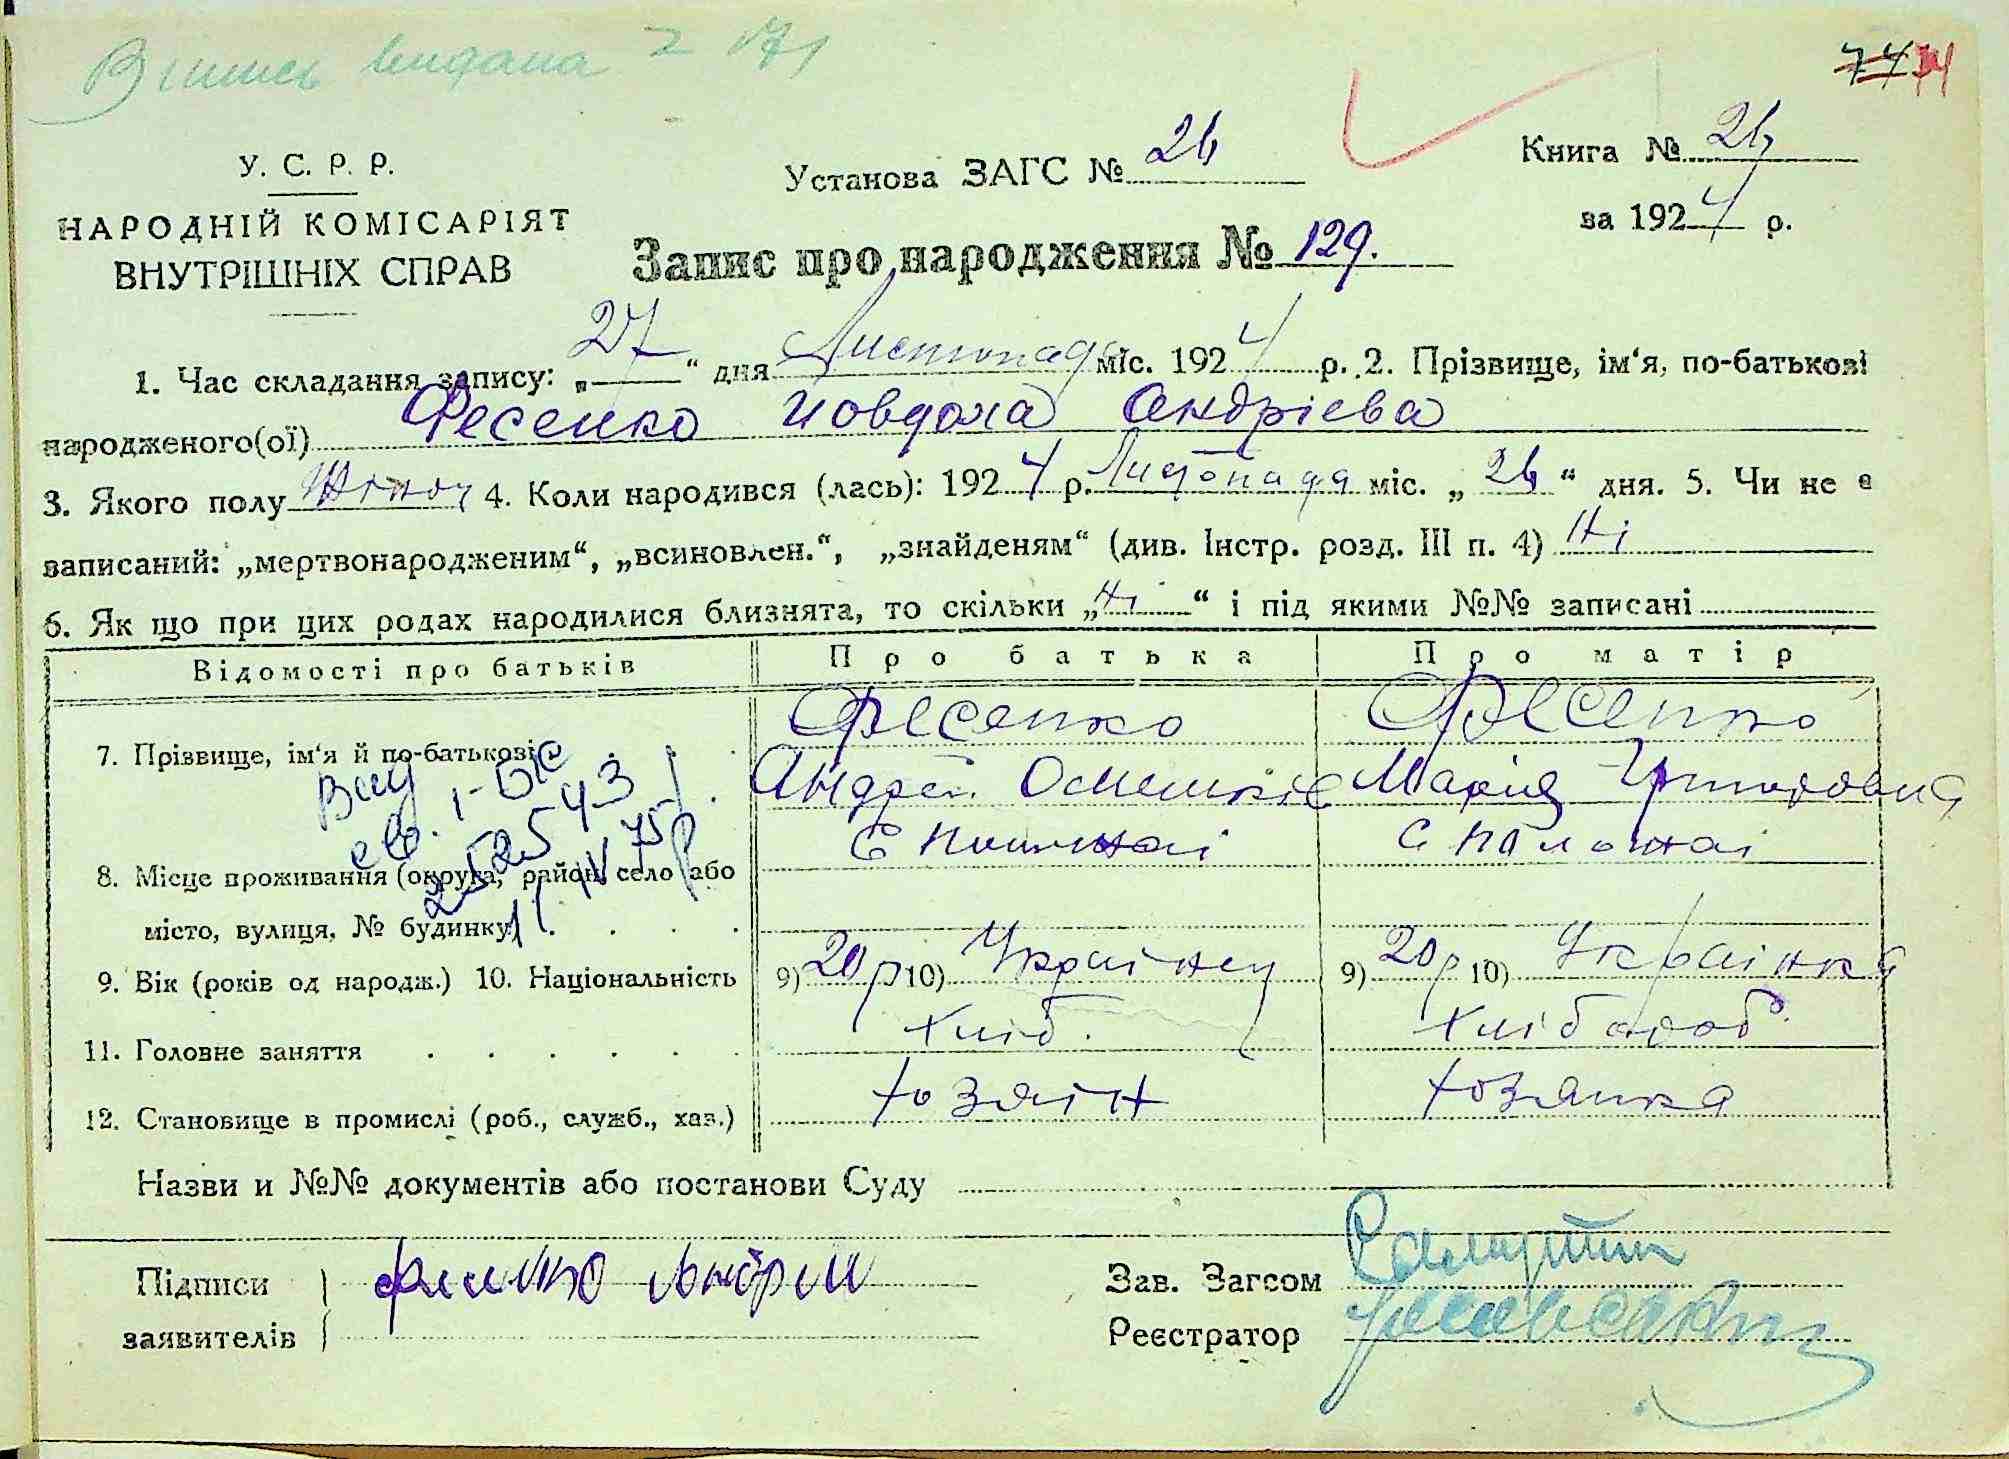 Випись видана
74 74
У. С. Р. Р.
НАРОДНІЙ КОМІСАРІЯТ
ВНУТРІШНІХ СПРАВ
Установа ЗАГС № 26
Книга № 26
за 1924 р.
Запис про народження № 129.
1. Час складання запису: „27“ дня Листопада міс. 1924 р. 2. Прізвище, ім‘я, по-батькові
народженого(ої) Фесенко Йовдоха Андрієва
3. Якого полу Жіноч 4. Коли народився (лась): 1924 р. Листопада міс. „26“ дня. 5. Чи не є
записаний: „мертвонародженим“, „всиновлен.“, „знайденям“ (див. Інстр. розд. III п. 4) Ні
6. Як що при цих родах народилися близнята, то скільки „Ні“ і під якими №№ записані
Відомості про батьків Про батька Про матір
7. Прізвище, ім‘я й по-батькові Фесенко Фесенко
Андрей Марія Григоровна
Вид
св. 1-
252543
11 IV 75 р
8. Місце проживання (округа, район, село або
місто, вулиця, № будинку) . . . .
9. Вік (років од народж.) 10. Національність 9) 20 р 10) Українец 9) 20 р 10) Українка
11. Головне заняття . . . . . . Хліб. Хлібороб.
12. Становище в промислі (роб., служб., хаз.) хозяін хозяика
Назви и №№ документів або постанови Суду
Підписи Фесенко Андрей
заявителів
Зав. Загсом
Реєстратор